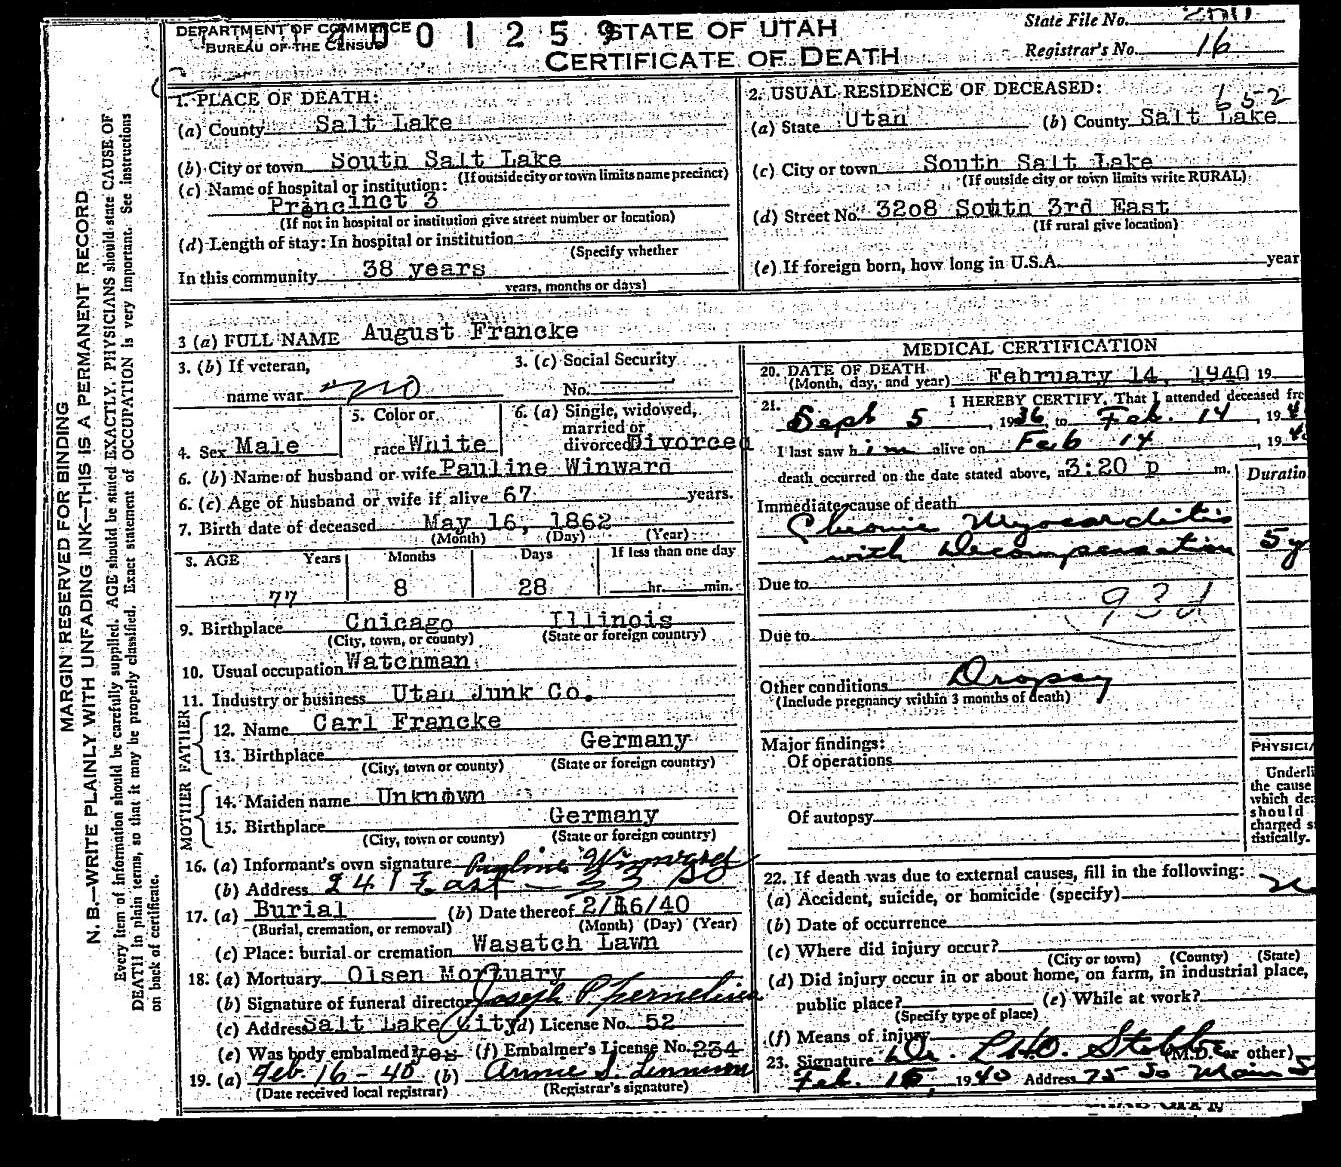 DEPARTMENT OF COMMERCE
BUREAU OF THE CENSUS
4001259
STATE OF UTAH
CERTIFICATE OF DEATH
State File No.
Registrar's No. 16
MARGIN RESERVED FOR BINDING
N. B.—WRITE PLAINLY WITH UNFADING INK—THIS IS A PERMANENT RECORD
Every item of information should be carefully supplied. AGE should be stated EXACTLY. PHYSICIANS should state CAUSE OF
DEATH in plain terms, so that it may be properly classified. Exact statement of OCCUPATION is very important. See instructions
on back of certificate.
1. PLACE OF DEATH:
(a) County Salt Lake
(b) City or town South Salt Lake
(If outside city or town limits name precinct)
(c) Name of hospital or institution:
Princinct 3
(If not in hospital or institution give street number or location)
(d) Length of stay: In hospital or institution
(Specify whether
In this community 38 years
years, months or days)
2. USUAL RESIDENCE OF DECEASED:
652
(a) State Utah (b) County Salt Lake
(c) City or town South Salt Lake
(If outside city or town limits write RURAL)
(d) Street No. 3208 South 3rd East
(If rural give location)
(e) If foreign born, how long in U.S.A. year
3 (a) FULL NAME August Francke
3. (b) If veteran, name war no
3. (c) Social Security No.
4. Sex Male
5. Color or race White
6. (a) Single, widowed, married or divorced Divorced
6. (b) Name of husband or wife Pauline Winward
6. (c) Age of husband or wife if alive 67 years.
7. Birth date of deceased May 16, 1862
(Month) (Day) (Year)
8. AGE Years Months Days If less than one day
77 8 28 hr. min.
9. Birthplace Chicago Illinois
(City, town, or county) (State or foreign country)
10. Usual occupation Watchman
11. Industry or business Utah Junk Co.
FATHER
12. Name Carl Francke
13. Birthplace Germany
(City, town or county) (State or foreign country)
MOTHER
14. Maiden name Unknown
15. Birthplace Germany
(City, town or county) (State or foreign country)
16. (a) Informant's own signature Pauline Winward
(b) Address 241 East 33 So
17. (a) Burial (b) Date thereof 2/16/40
(Burial, cremation, or removal) (Month) (Day) (Year)
(c) Place: burial or cremation Wasatch Lawn
18. (a) Mortuary Olsen Mortuary
(b) Signature of funeral director Joseph P
(c) Address Salt Lake City (d) License No. 52
(e) Was body embalmed? yes (f) Embalmer's License No. 234
19. (a) Feb. 16 - 40 (b) Annie S.
(Date received local registrar) (Registrar's signature)
MEDICAL CERTIFICATION
20. DATE OF DEATH
(Month, day, and year) February 14, 1940 19
21. I HEREBY CERTIFY, That I attended deceased fro
Sept 5, 1936 to Feb. 14, 194
I last saw him alive on Feb 14, 194
death occurred on the date stated above, a 3:20 p m.
Duratio
Immediate cause of death
Chronic Myocarditis
with Decompensation 5 y
Due to
93d
Due to
Other conditions Dropsy
(Include pregnancy within 3 months of death)
Major findings:
Of operations
Of autopsy
PHYSICIA
Underli
the cause
which dea
should
charged s
tistically.
22. If death was due to external causes, fill in the following:
(a) Accident, suicide, or homicide (specify) no
(b) Date of occurrence
(c) Where did injury occur?
(City or town) (County) (State)
(d) Did injury occur in or about home, on farm, in industrial place,
public place? (e) While at work?
(Specify type of place)
(f) Means of injury
23. Signature Dr. (M.D. or other)
Feb. 15, 1940 Address 75 So Main S